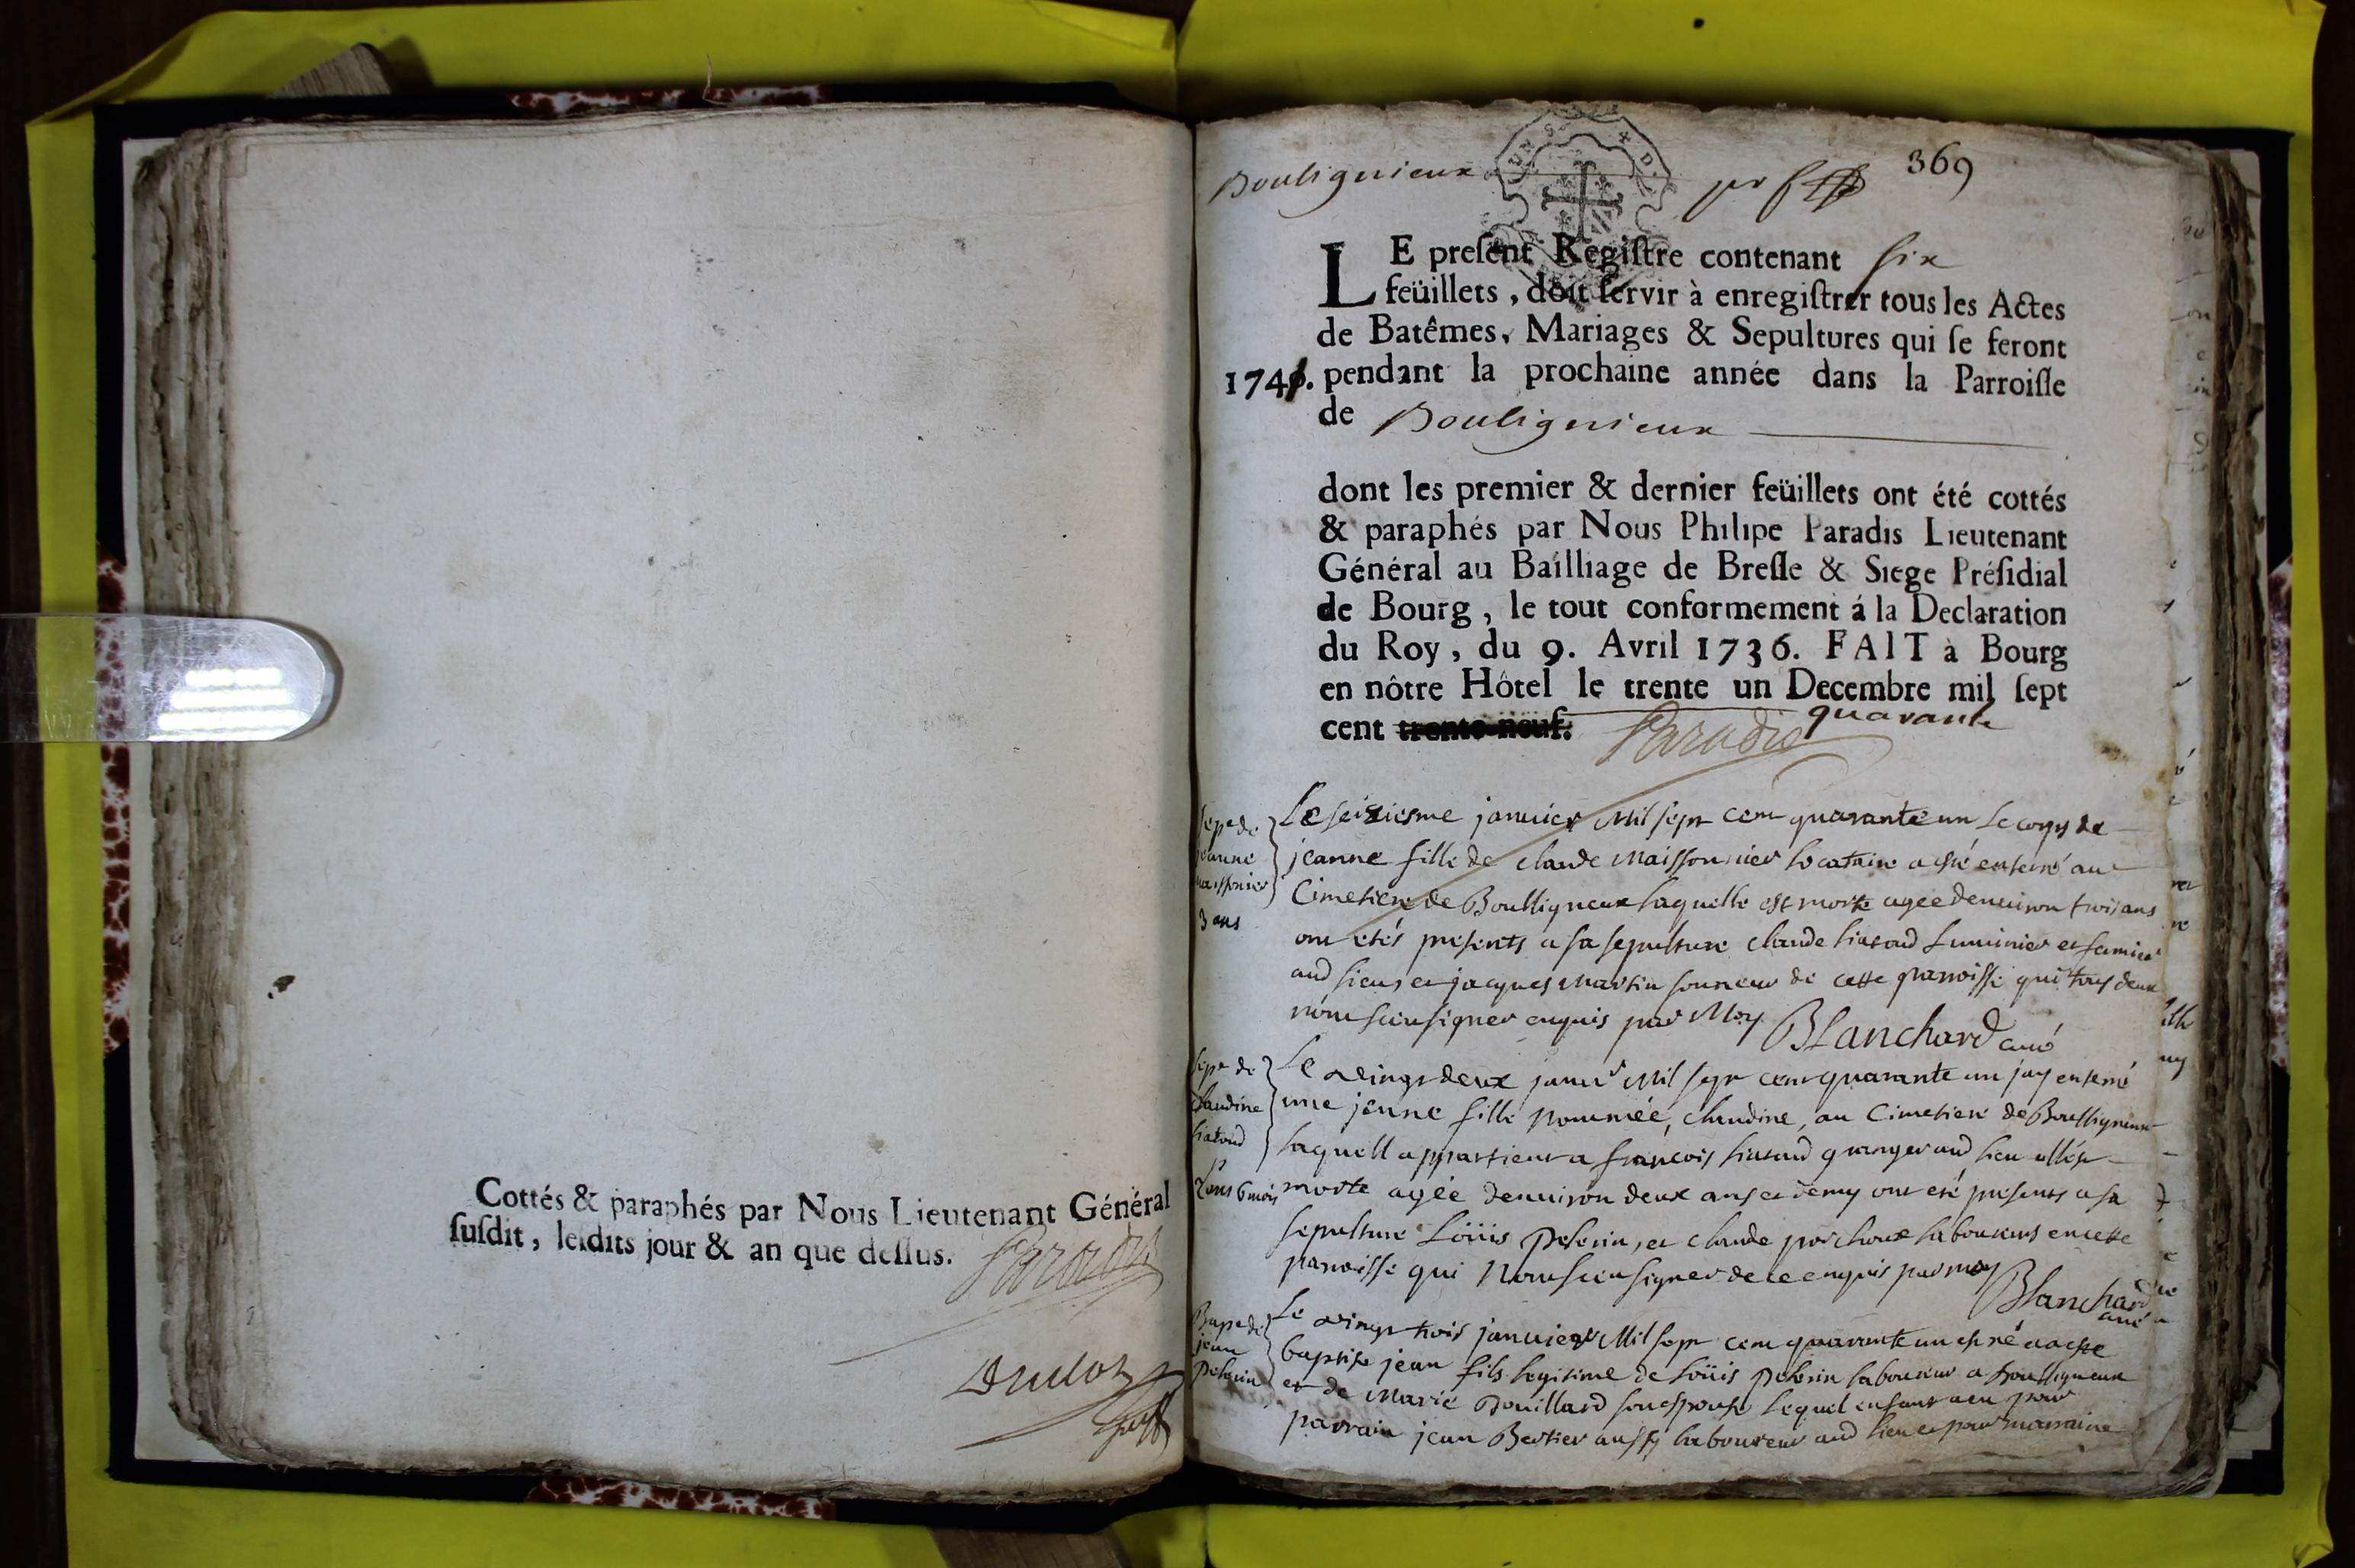 Cottés & paraphés par Nous Lieutenant Général
ſuſdit, leſdits jour & an que deſſus.
Paradis
Bouligneux
369
LE preſent Regiſtre contenant six
feüillets, doit ſervir à enregiſtrer tous les Actes
de Batêmes, Mariages & Sepultures qui ſe feront
1741. pendant la prochaine année dans la Parroiſſe
de Bouligneux
dont les premier & dernier feüillets ont été cottés
& paraphés par Nous Philipe Paradis Lieutenant
Général au Bailliage de Breſſe & Siege Préſidial
de Bourg, le tout conformement á la Declaration
du Roy, du 9. Avril 1736. FAIT à Bourg
en nôtre Hôtel le trente un Decembre mil ſept
cent trente-neuf. quarante
Paradis
sepre de
jeanne
maissonier
3 ans
Le seiziesme janvier Mil sept cent quarante un le corps de
jeanne fille de claude Maissonnier locataire a esté enterré au
Cimetiere de Boulligneux laquelle est morte agée denviron trois ans
ont etés presents a sa sepulture claude liatoud luminier et fermier
aud lieu et jacques Martin sonneur de cette parroisse qui tous deux
n'ont sceu signer enquis par Moy
Blanchard curé
sepre de
claudine
liatoud
2 ans 6 mois
Le vingt deux janvr Mil sept cent quarante un jay enterré
une jeune fille nommée, claudine, au Cimetiere de Boulligneux
laquell appartient a francois liatoud granger aud lieu
morte agée denviron deux ans et demy ont eté presents a sa
sepulture Loüis Pelerin, et claude porchoux laboureurs en cette
parroisse qui n'ont sceu signer de ce enquis par moy
Blanchard
curé
Bapt de
jean
Pelerin
Le vingt trois janvier Mil sept cent quarante un est né et a esté
baptisé jean fils legitime de Loüis Pelerin laboureur a Boulligneux
et de Marie Douillard son espouse lequel enfant a eu pour
parrain jean Bertier aussy laboureur aud lieu et pour marraine